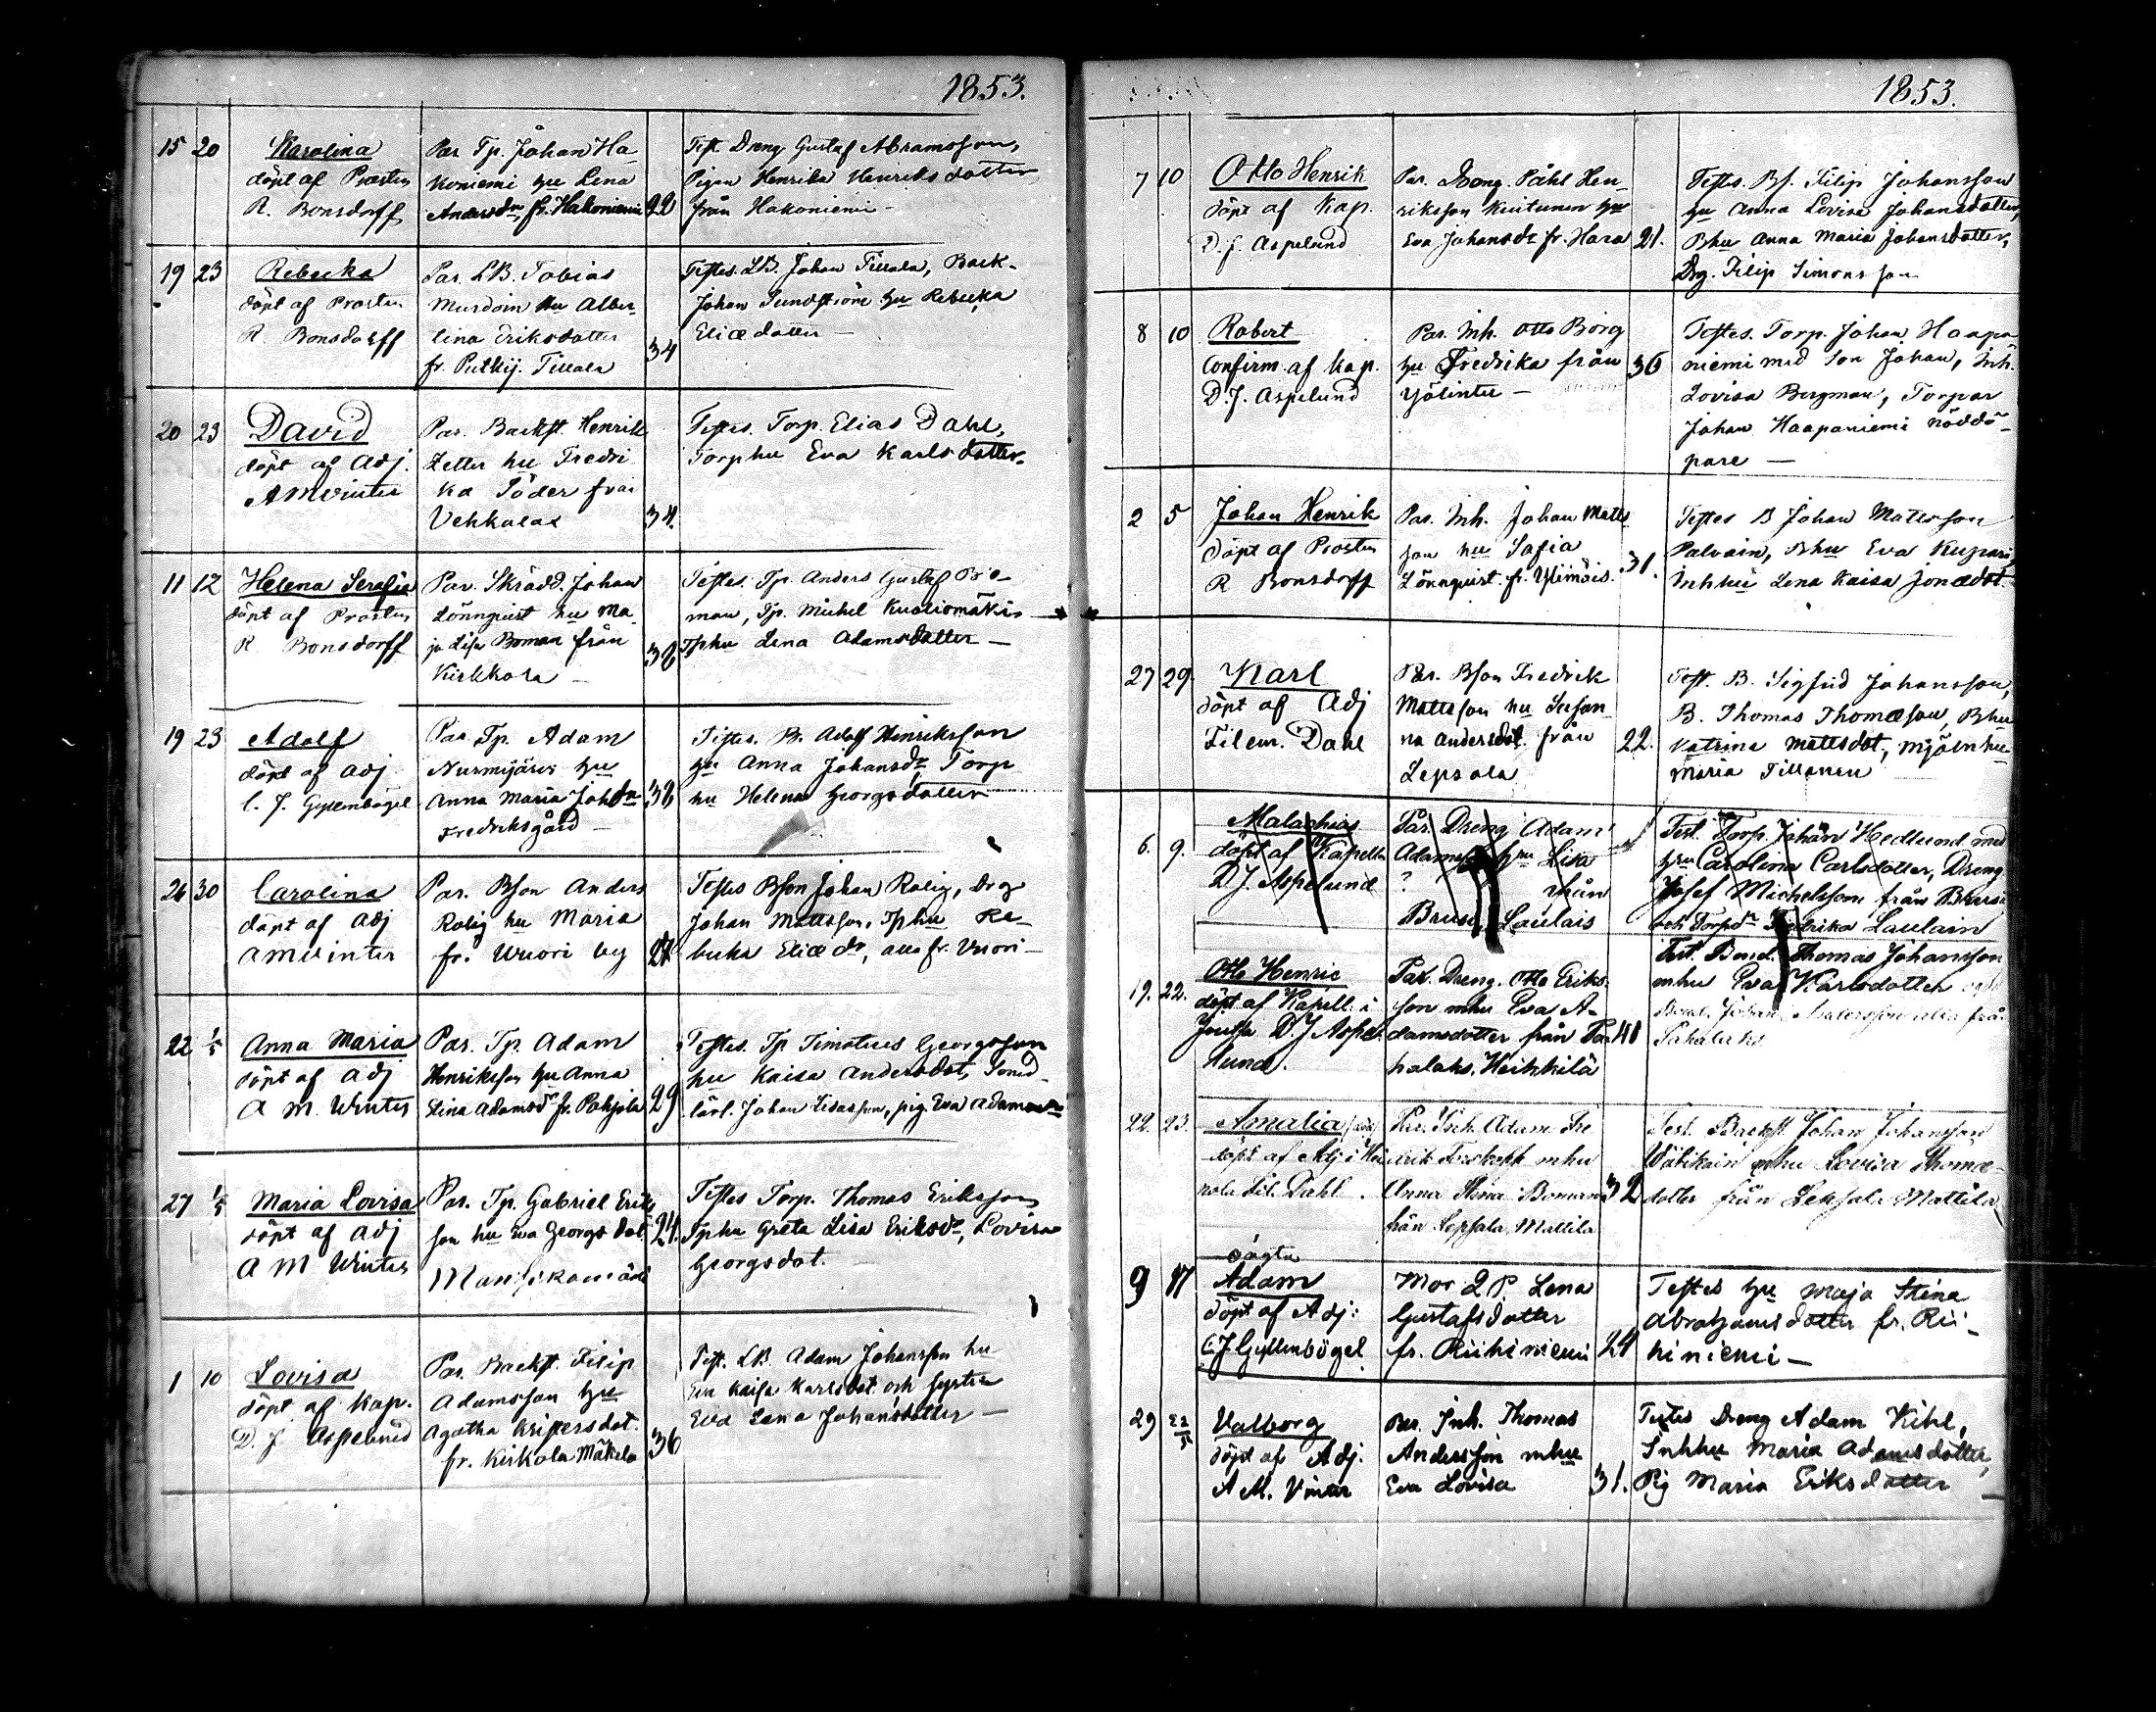 1853.
15 20 Karolina Par Tp. Johan Ha- Test. Dreng Gustaf Abramsson,
döpt af Prosten koniemi hu Lena Pigan Henrika Henriksdotter
R. Bonsdorff Andersdr, fr. Hakoniemi 22 från Hakoniemi –
19 23 Rebecka Par. LB. Tobias Testes. LB. Johan Tillala, Back-
döpt af Prosten Murdoin hu Alber- Johan Sundström hu Rebecka
R. Bonsdorff tina Eriksdotter Eliædotter –
fr. Putkij. Tillala 34
20 23 David Par. Backst. Henrik Testes. Torp. Elias Dahl,
döpt af Adj. Zetter hu Fredri- Torphu Eva Karlsdotter
A M Winter ka Söder från
Vehkalax 34.
11 12 Helena Serafia Par. Skrädd. Johan Testes. Tp. Anders Gustaf
döpt af Prosten Lönnquist hu Ma- man, Tp. Michel
R. Bonsdorff ja Lisa Boman från Tphu Lena Adamsdotter –
Kirkkola – 38
19 23 Adolf Par Tp. Adam Testes. B. Adolf Henriksson
döpt af Adj Nurmijärvi hu hu Anna Johansdr, Torp
C. J. Gyllenbögel Anna Maria Johdr 38 hu Helena Georgsdotter
Fredriksgård –
26 30 Carolina Par. Bson Anders Testes Bson Johan Rolig, Drg
döpt af Adj Rolig hu Maria Johan Mattsson, Tphu Re-
A M Winter fr. Wuori by becka Eliædr, alla fr. Vuori –
22 1/5 Anna Maria Par. Tp. Adam Testes. Tp Timoteus Georgsson
döpt af Adj Henriksson hu Anna hu Kaisa Andersdot,
A M. Winter Stina Adamsdr fr. Pohjola 29 lärl. Johan Esaasson, pig Eva Adamsdr
27 1/5 Maria Lovisa Par. Tp. Gabriel Eriks- Testes Torp. Thomas Eriksson
döpt af Adj son hu Eva Georgsdot 24. Tphu Greta Lisa Eriksdr, Lovisa
A M Winter Mansikamäki Georgsdot.
1 10 Lovisa Par. Backst. Filip Test. LB. Adam Johansson hu
döpt af Kap. Adamsson hu Eva Kaisa Karlsdot och syster
D. J. Aspelund Agatha Kristersdot. Eva Lena Johansdotter –
fr. Kirkola Mäkelä 36
1853.
7 10 Otto Henrik Par. Dreng. Påhl Hen- Testes. Bs. Filip Johansson
döpt af Kap. riksson Kuitunen hu hu Anna Lovisa Johansdotter,
D. J. Aspelund Eva Johansdr fr. Hara 21. Bhu Anna Maria Johansdotter,
Drg. Filip Simonsson
8 10 Robert Par. Inh. Otto Borg Testes. Torp. Johan Haapa-
Confirm. af Kap. hu Fredrika från 36 niemi med son Johan, Inh.
D. J. Aspelund Yölintu – Lovisa Bergman, Torpar
Johan Haapaniemi nöddö-
pare –
2 5 Johan Henrik Par. Inh. Johan Matts- Testes B Johan Mattsson
döpt af Prosten son hu Sofia 31. Palvain, Bhu Eva Kupari,
R Bonsdorff Lönnquist. fr. Ylimäis. Inhhu Lena Kaisa Jonædot.
27 29 Karl Par. Bson Fredrik Test. B. Sigfrid Johansson,
döpt af Adj Mattsson hu Susan- B. Thomas Thomasson, Bhu
Fil cur. Dahl na Andersdot. från 22. Katrina Mattsdot, Mjölnhu
Lepsala Maria Tillanen
6. 9. Malachias Par. Dreng Adam Test. Torp. Johan Hedlund med
döpt af Kapellan Adamsson hu Lisa hru Carolina Carlsdotter, Dreng
D J. Aspelund ? från Josef Michelsson från Bruse
Bruse Laulais och Torpdr Fredrika Laulain
19. 22. Otto Henric Par. Dreng. Otto Eriks- Test. Bond. Thomas Johansson
döpt af Kapell. i son mhu Eva A- mhu Eva Karlsdotter
D J Aspe- damsdotter från Pa- 40 Bond. Johan från
lund. halaks. Heikkilä Pahalaks
22. 23. Amalia Par. Inh. Adam Fre- Test. Backst. Johan Johansson
döpt af Adj i Hei- drik mhu Wätikäin mhu Lovisa Thomæ-
nola Fil. Dahl. Anna Stina Boman 32 dotter från Lepsala Mattila
från Lepsala Mattila
oägta
9 17 Adam Mor L P. Lena Testes hu Maja Stina
döpt af Adj: Gustafsdotter Abrahamsdotter fr. Rii-
C J Gyllenbögel fr. Riihiniemi 24 hiniemi –
29 22/5 Valborg Par. Inh. Thomas Testes Dreng Adam Kihl,
döpt af Adj. Andersson mhu Inhhu Maria Adamsdotter,
A M. Vinter Eva Lovisa 31. Pig Maria Eriksdotter –